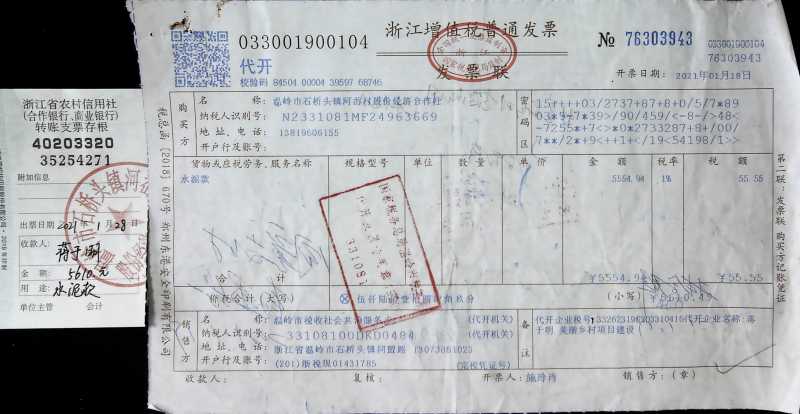 浙江省农村信用社
(合作银行、商业银行)
转账支票存根
40203320
35254271
附加信息
出票日期 2021年1月28日
收款人:
金额: 5610元
用途: 水泥款
单位主管 会计
033001900104
浙江增值税普通发票
№ 76303943
033001900104
76303943
代开
发票联
校验码 84504 00004 39597 68746
开票日期: 2021年01月18日
购买方
名称: 温岭市石桥头镇河 村股份经济合作社
纳税人识别号: N2331081MF24963669
地址、电话: 13819606155
开户行及账号:
密码区
15++++03/2737+87+8+0/5/7*89
03*9-7*39>/90/459/<-8-/<48<
-7255*+7<>*0*2733287+8+/00/
7**/2*+9<++1+</19<54198/1>>
货物或应税劳务、服务名称 规格型号 单位 数量 单价 金额 税率 税额
水泥款 5554.94 1% 55.55
合计 ¥5554.94 ¥55.55
价税合计(大写) 伍仟陆佰壹拾圆肆角玖分 (小写) ¥5610.49
销售方
名称: (代开机关)
纳税人识别号: (代开机关)
地址、电话: 浙江省温岭市石桥头镇同盟路
开户行及账号: (201)浙税现01431785 (完税凭证号)
备注
代开企业税号: 代开企业名称:
于明 美丽乡村项目建设
收款人: 复核: 开票人: 销售方:(章)
税总函〔2018〕670号 郑州东港安全印刷有限公司
第二联:发票联 购买方记账凭证